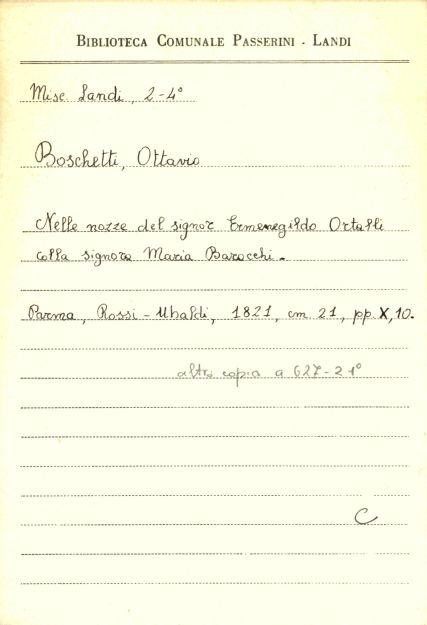 BIBLIOTECA COMUNALE PASSERINI - LANDI
Misc. Landi, 2-4°
Boschetti, Ottavio
Nelle nozze del signor Ermenegildo Ortalli
colla signora Maria Barocchi.
Parma, Rossi-Ubaldi, 1821, cm. 21, pp. X, 10.
altra copia a 627-21°
C